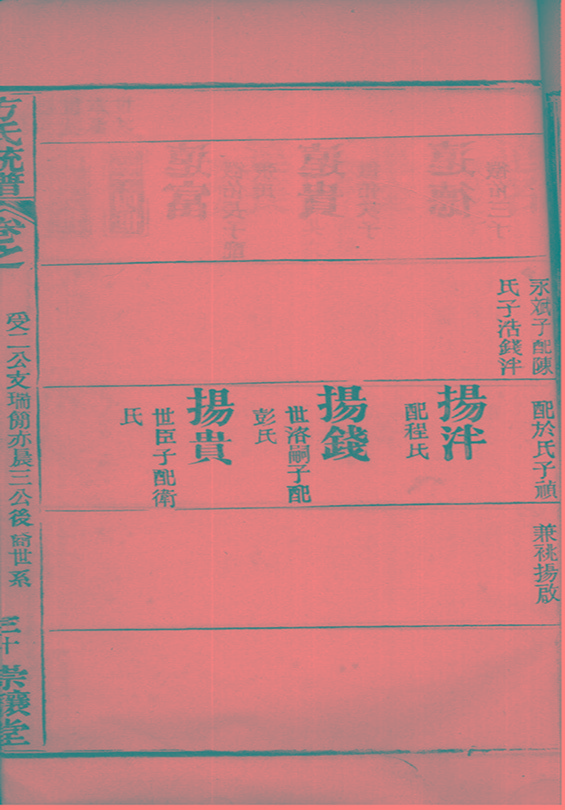 永斌子配陳
氏子浩錢泮
配於氏子禎
兼祧揚啟
揚泮
配程氏
揚錢
世洛嗣子配
彭氏
揚貴
世臣子配衛
氏
方氏統譜
卷之一
受二公支瑞朗亦晨三公後裔世系
三十